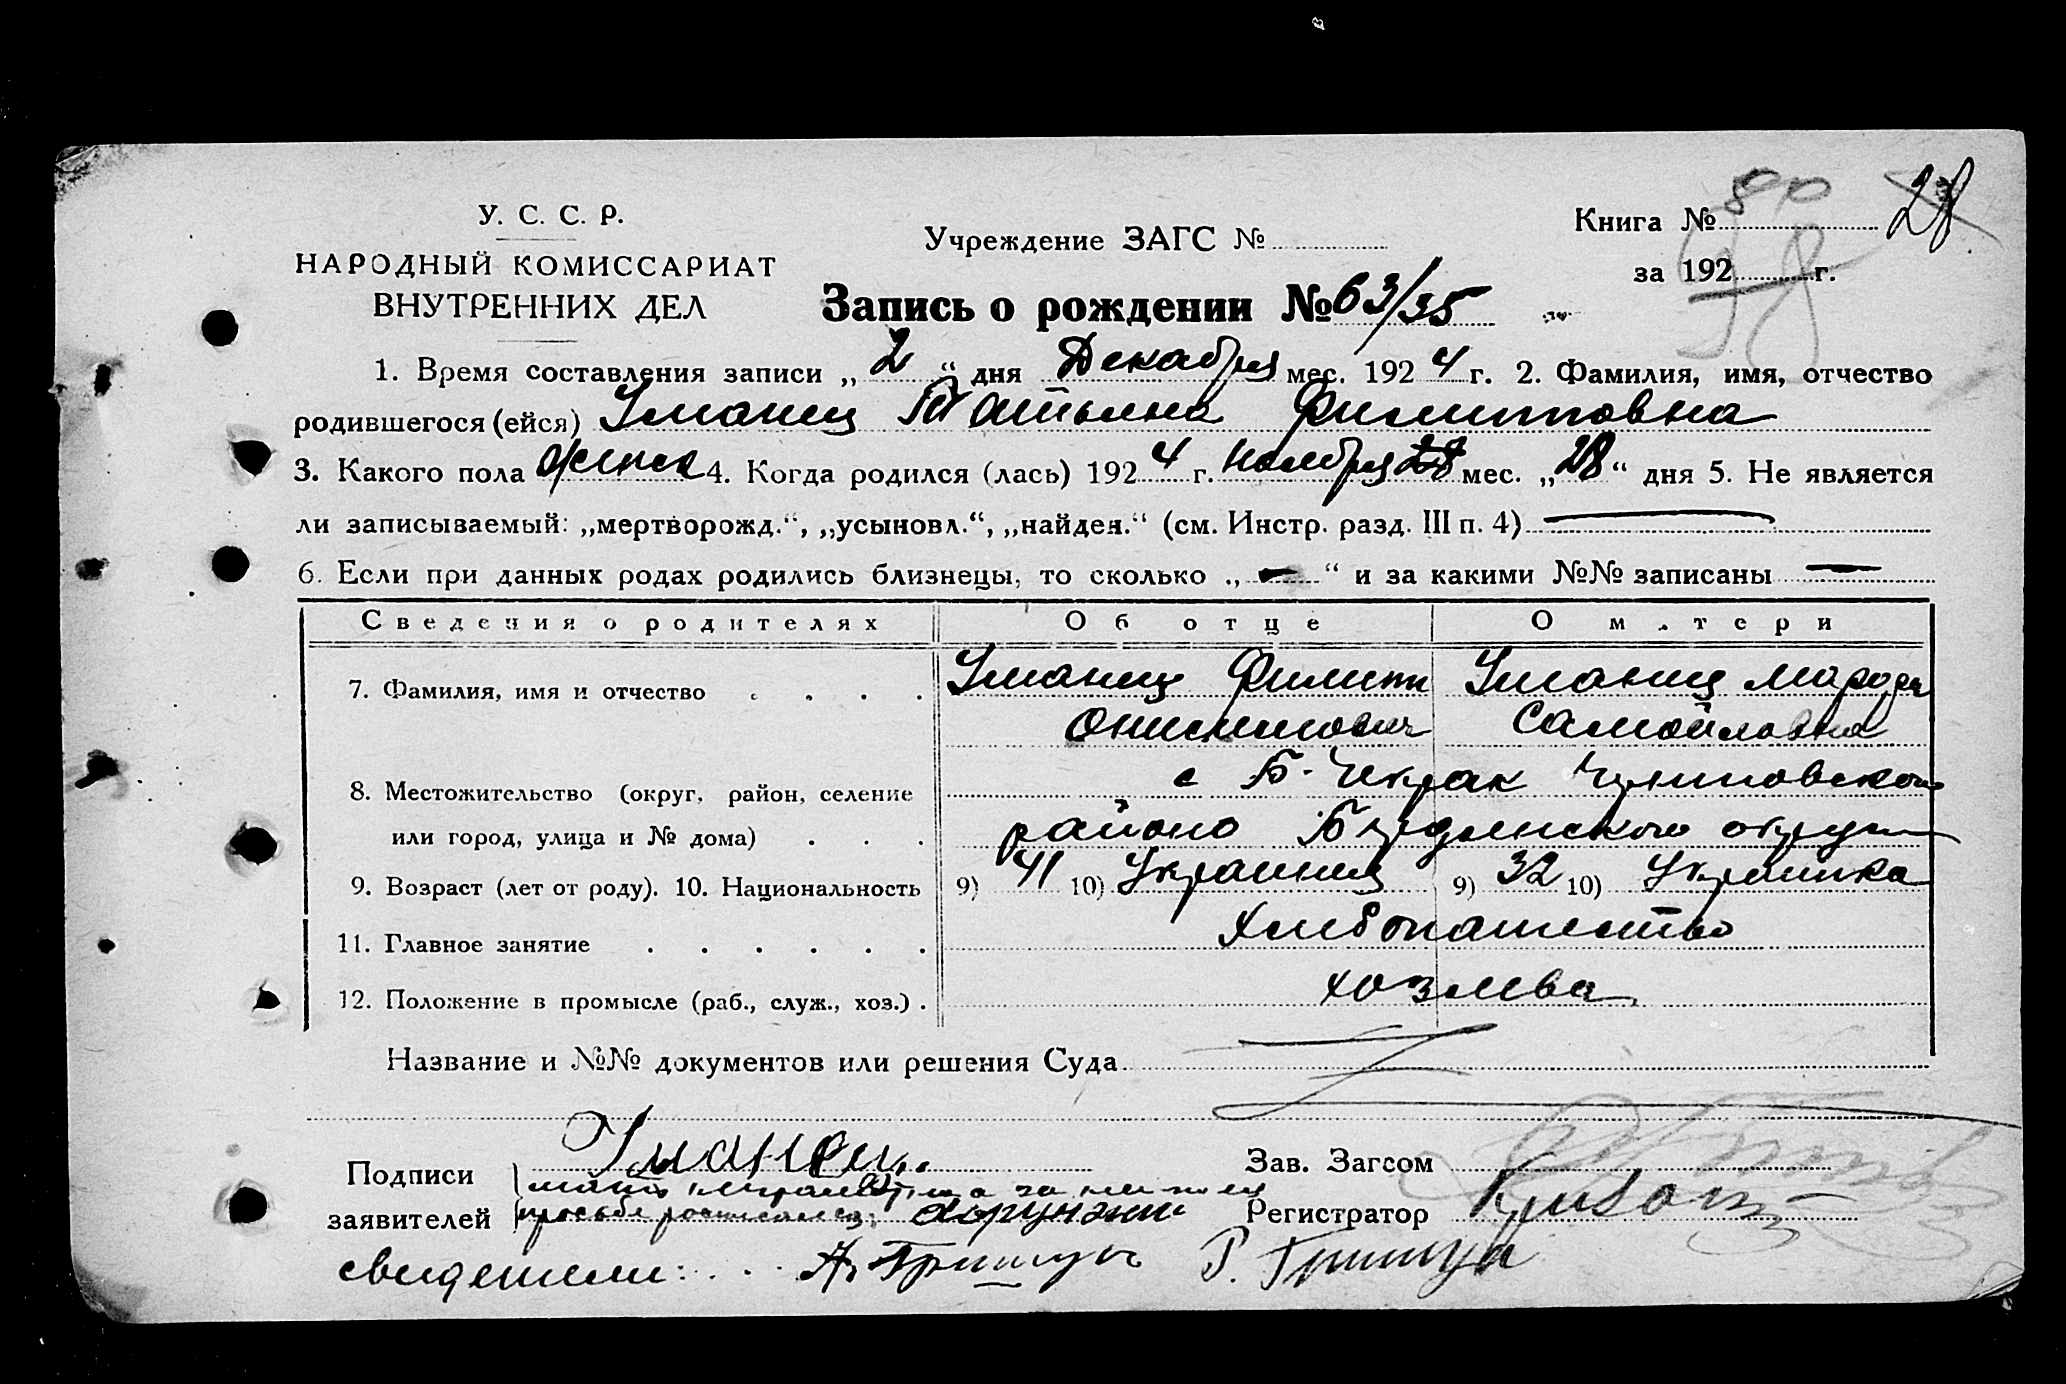 У. С. С. Р.
НАРОДНЫЙ КОМИССАРИАТ
ВНУТРЕННИХ ДЕЛ
Учреждение ЗАГС №
Книга № 28
за 192 г.
Запись о рождении № 63/35
1. Время составления записи „ 2 “ дня Декабря мес. 192 4 г. 2. Фамилия, имя, отчество
родившегося (ейся) Уманец Татьяна Филипповна
3. Какого пола женск 4. Когда родился (лась) 192 4 г. Ноября 28 мес. „ 28 “ дня 5. Не является
ли записываемый: „мертворожд.“, „усыновл.“, „найден.“ (см. Инстр. разд. III п. 4)
6. Если при данных родах родились близнецы, то сколько „ — “ и за какими №№ записаны —
Сведения о родителях Об отце О м.тери
7. Фамилия, имя и отчество Уманец Филипп Уманец
Онисимович Самойловна
8. Местожительство (округ, район, селение с Б. Чекрак
или город, улица и № дома) района Бердянского округа
9. Возраст (лет от роду). 10. Национальность 9) 41 10) Украинец 9) 32 10) Украинка
11. Главное занятие Хлибопашество
12. Положение в промысле (раб., служ., хоз.) хозяева
Название и №№ документов или решения Суда
Подписи Уманец Зав. Загсом
заявителей просьбе Регистратор
свидетели: А. Грищук Р.